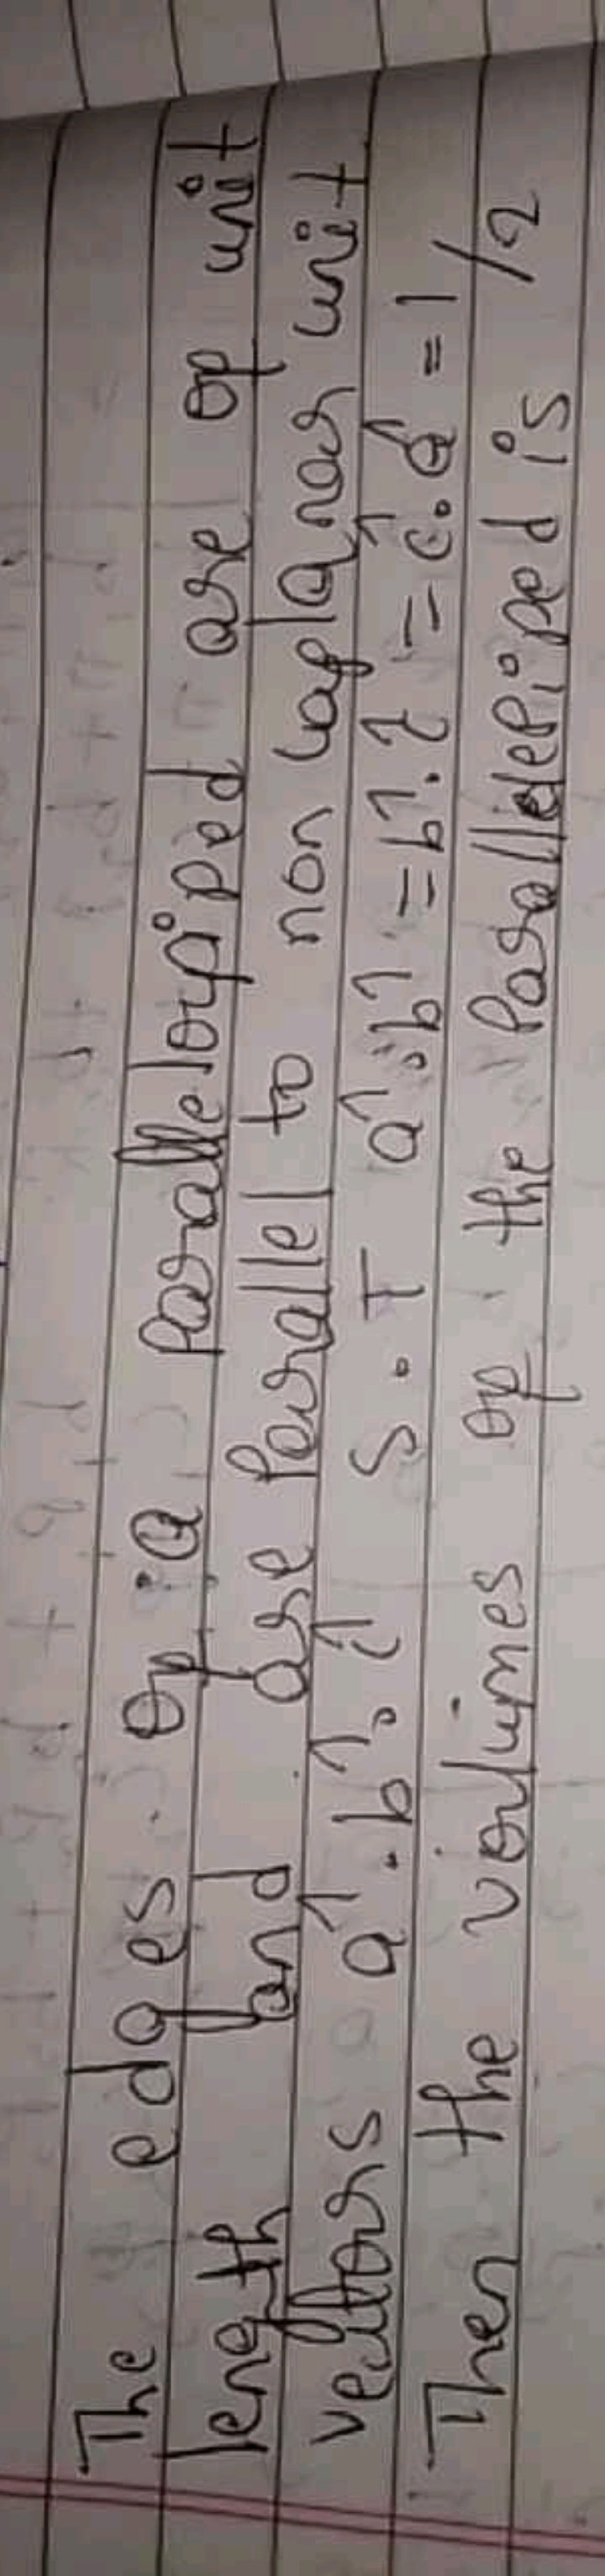 The edges of a Parallelorpiped are of unit
length and are Parallel to non coplanar unit
vectors a^. b^. c^ S.T a^.b^ = b^.c^ = c^.a^ = 1/2
Then the volumes of the Parallelepiped is